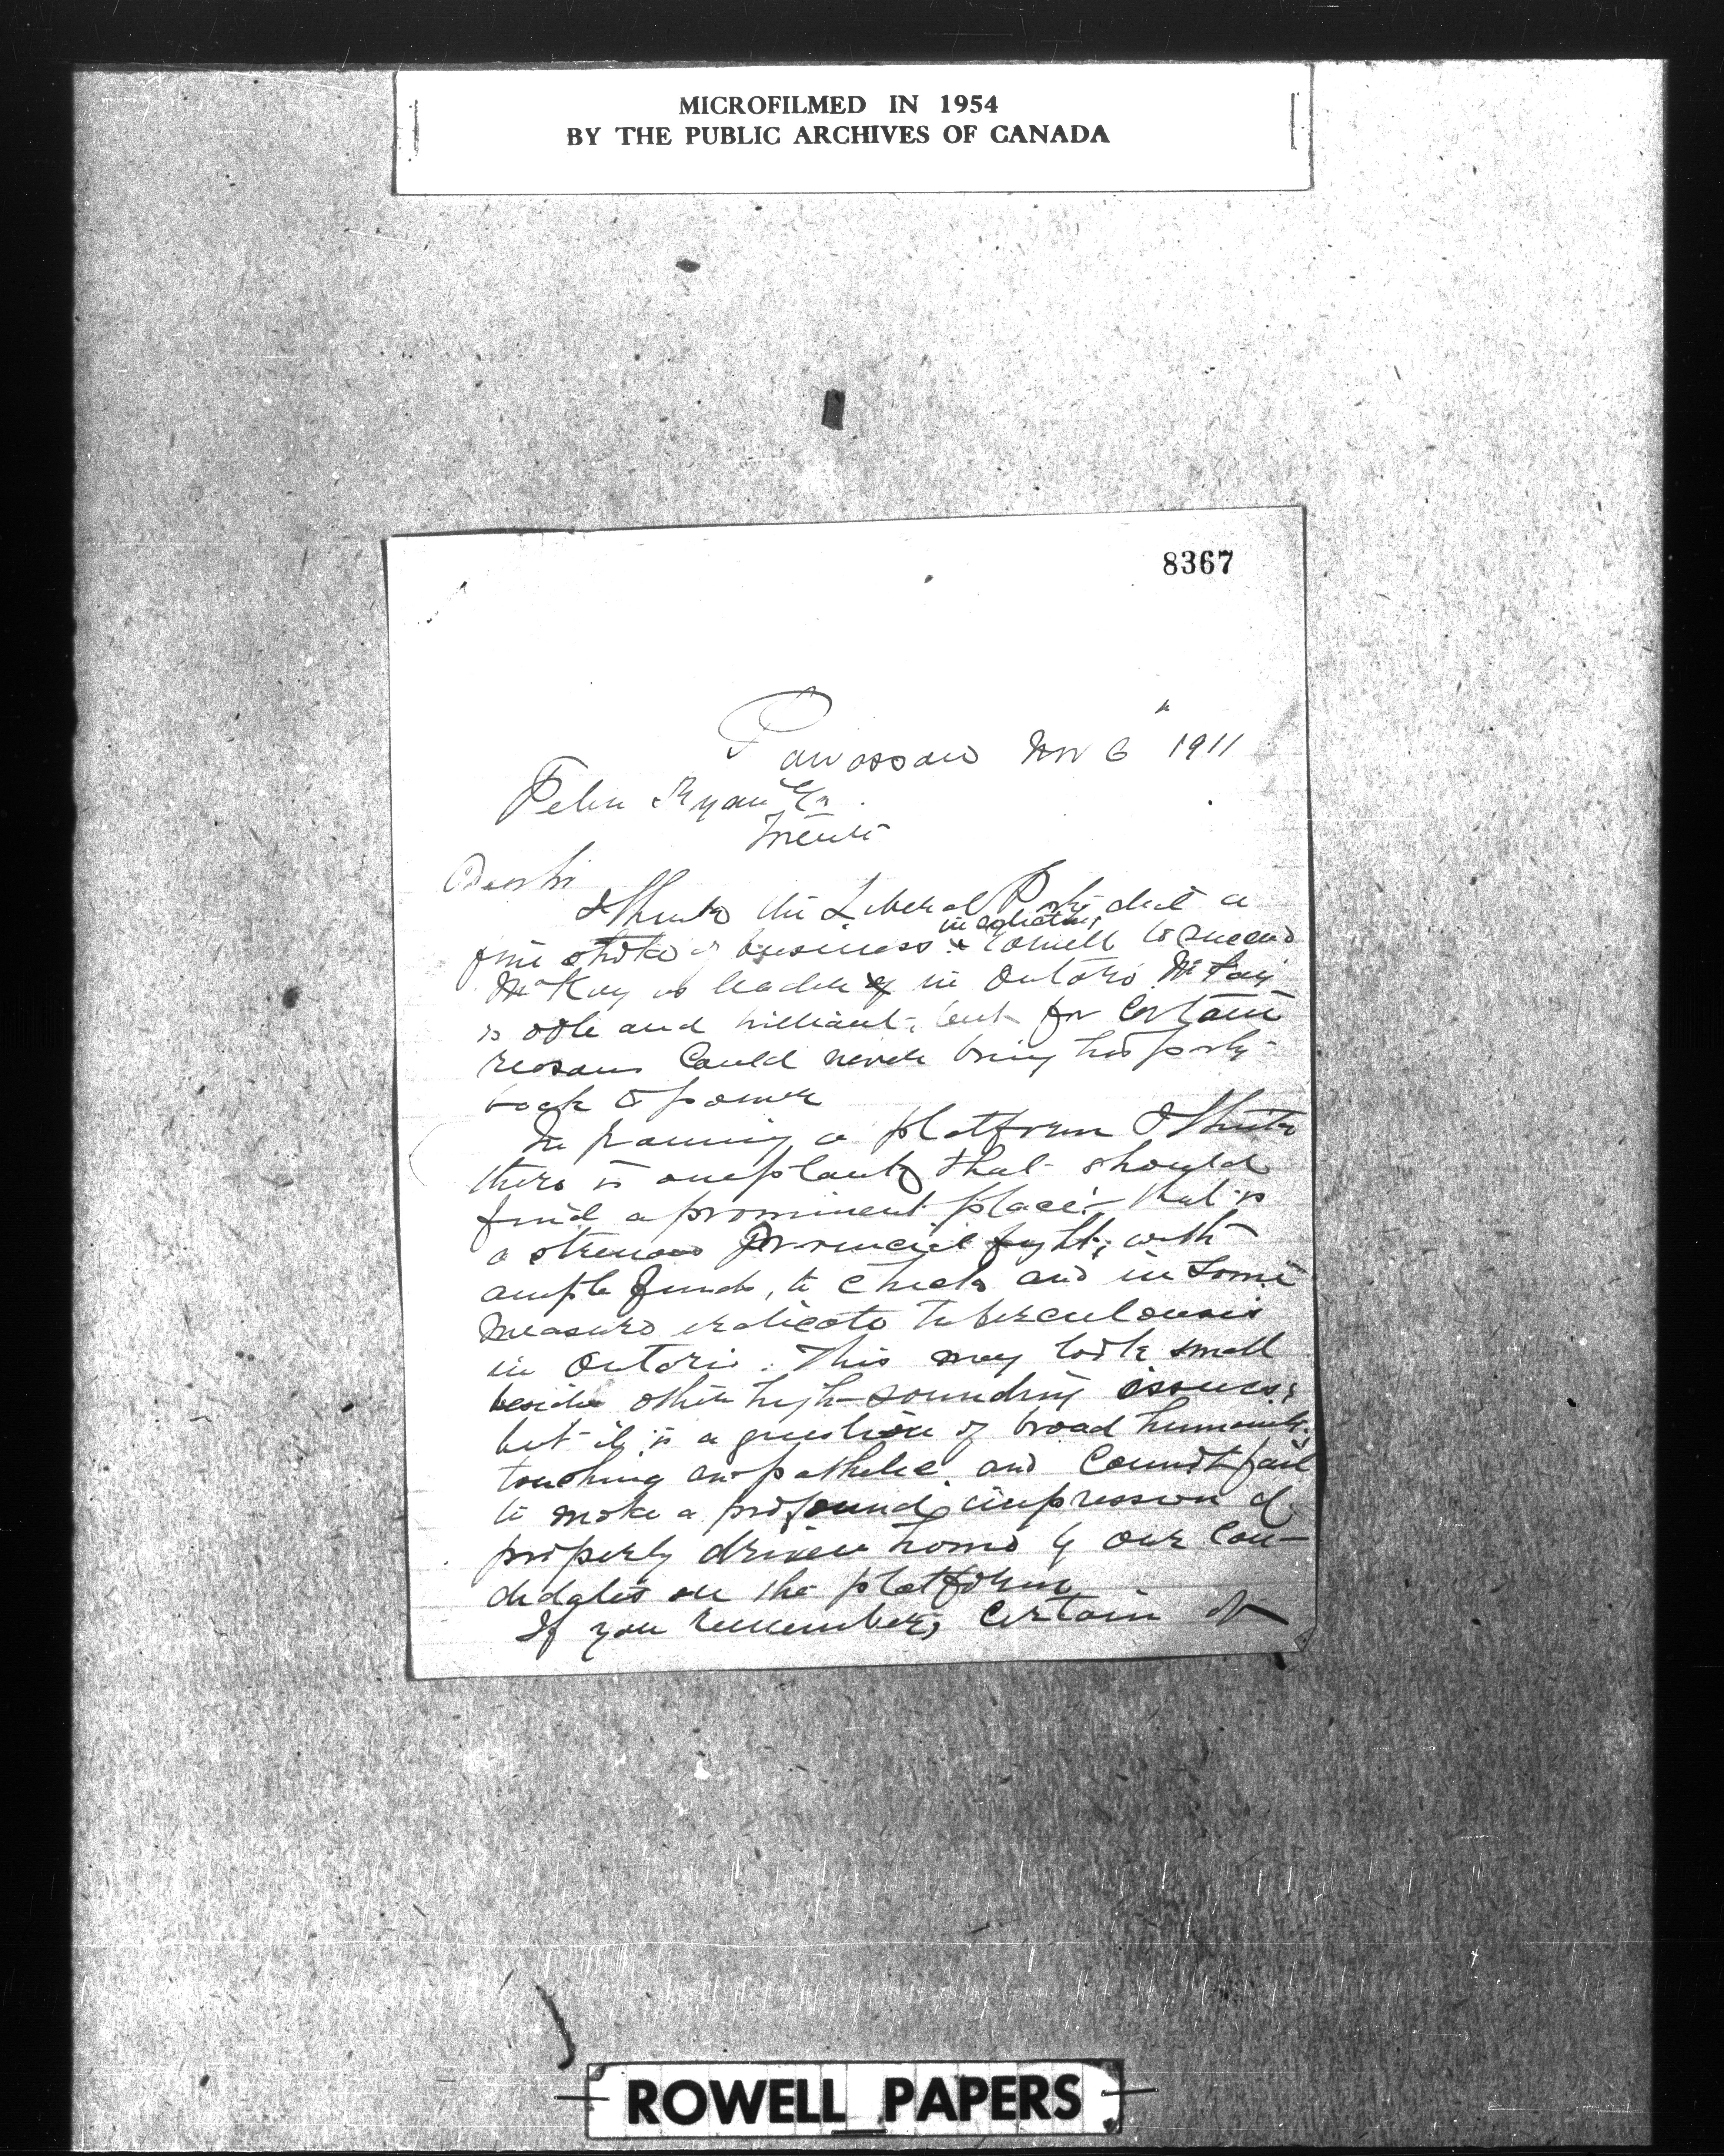 MICROFILMED IN 1954
BY THE PUBLIC ARCHIVES OF CANADA
8367
Powassan Nov 6th 1911
Peter Ryan Esq.
Toronto
Dear Sir
I think the Liberal Party did a
fine stroke of business in selecting Rowell to succeed
McKay as leader in Ontario. McKay
is able and brilliant, but for certain
reasons could never bring his party
back to power
In framing a platform I think
there is one plank that should
find a prominent place: that is
a strenuous Provincial fight, with
ample funds, to check and in some
measure eradicate tuberculousis
in Ontario. This may look small
beside other high-sounding issues;
but it is a question of broad humanity,
touching and pathetic, and cannot fail
to make a profound impression if
properly driven home by our can-
didates on the platform
If you remember, certain of
ROWELL PAPERS